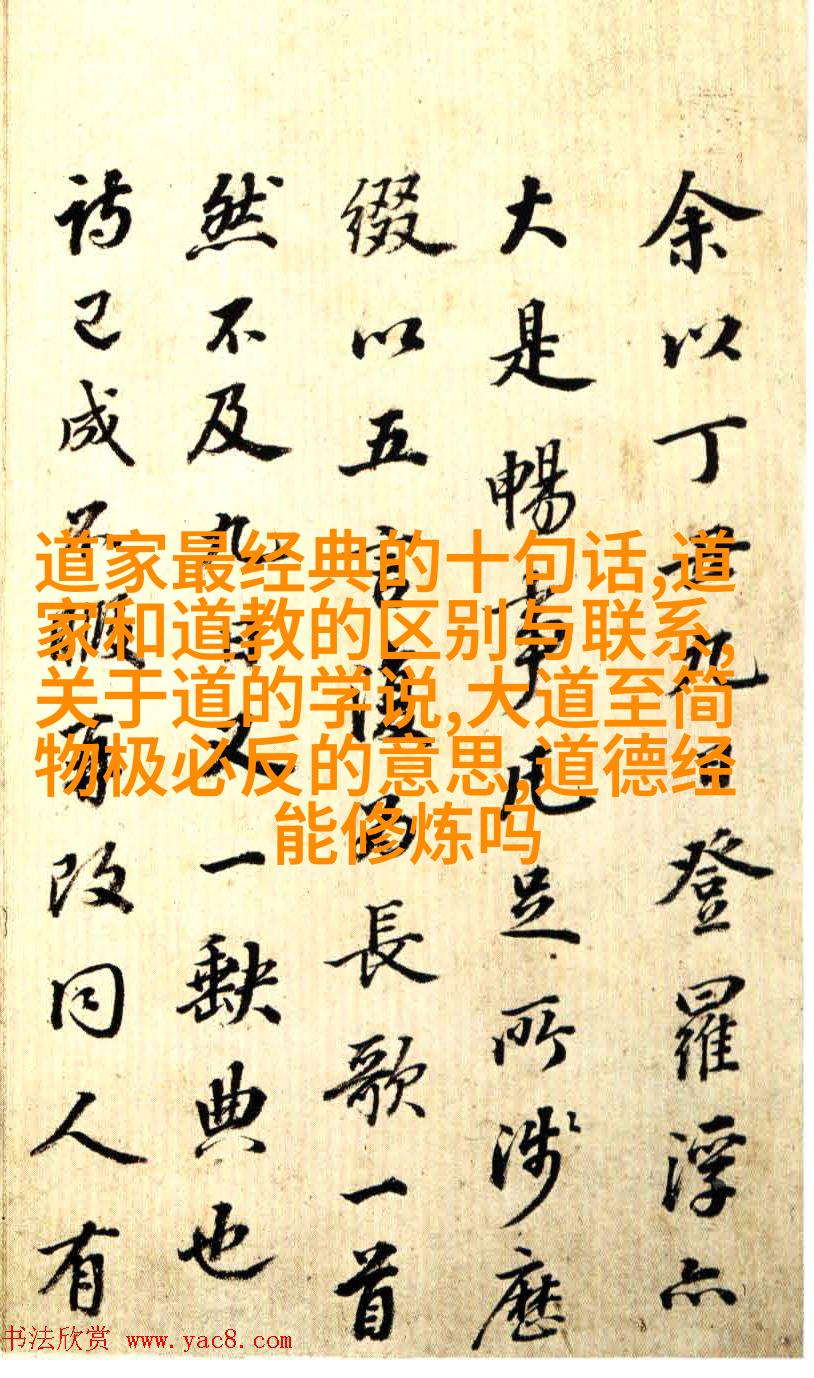 道家最经典的十句话,道
家和道教的区别与联系,
关于道的学说,大道至简
物极必反的意思,道德经
能修炼吗
余以丁 登羅浮亦
大是暢事凡足所涉歷
缀以五言復為長歌一首
然不及九言又一缺典也
詩已成不 改同人有
书法欣赏 www.yac8.com